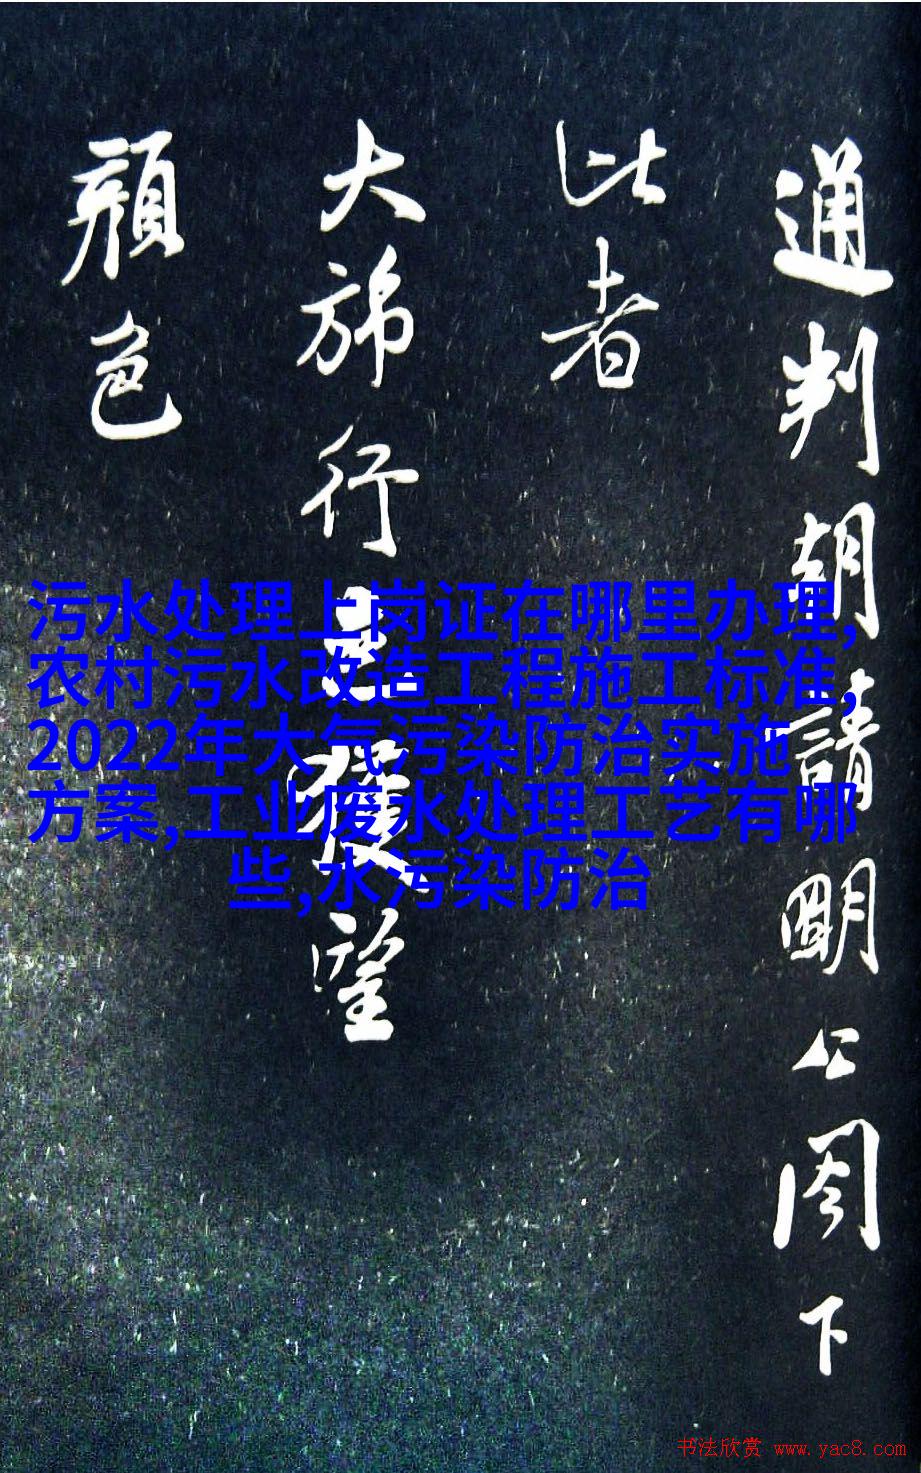 通判朝請明公閣下
比者
大旆行已獲望
顏色
污水处理上岗证在哪里办理,
农村污水改造工程施工标准,
2022年大气污染防治实施
方案,工业废水处理工艺有哪
些,水污染防治
书法欣赏 www.yac8.com